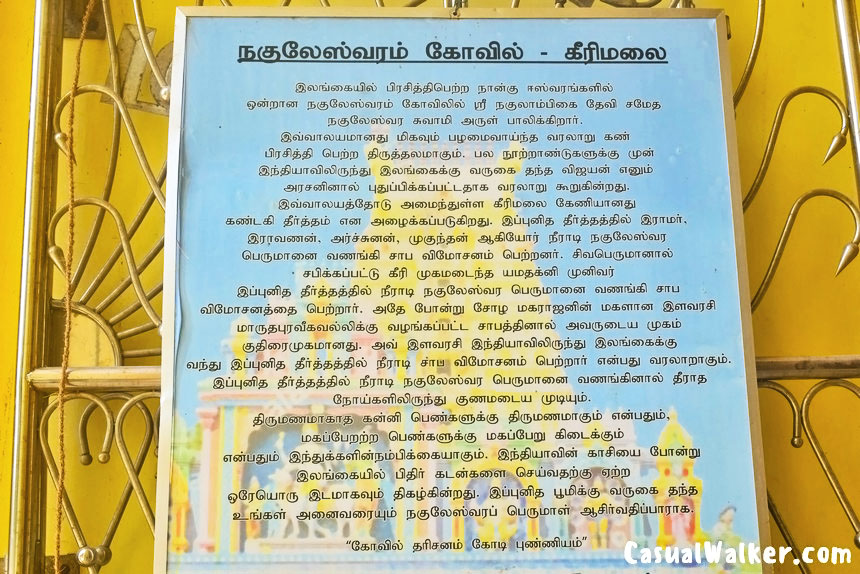 நகுலேஸ்வரம் கோவில் - கீரிமலை
இலங்கையில் பிரசித்திபெற்ற நான்கு ஈஸ்வரங்களில்
ஒன்றான நகுலேஸ்வரம் கோவிலில் ஸ்ரீ நகுலாம்பிகை தேவி சமேத
நகுலேஸ்வர சுவாமி அருள் பாலிக்கிறார்.
இவ்வாலயமானது மிகவும் பழமைவாய்ந்த வரலாறு கண்
பிரசித்தி பெற்ற திருத்தலமாகும். பல நூற்றாண்டுகளுக்கு முன்
இந்தியாவிலிருந்து இலங்கைக்கு வருகை தந்த விஜயன் எனும்
அரசனினால் புதுப்பிக்கப்பட்டதாக வரலாறு கூறுகின்றது.
இவ்வாலயத்தோடு அமைந்துள்ள கீரிமலை கேணியானது
கண்டகி தீர்த்தம் என அழைக்கப்படுகிறது. இப்புனித தீர்த்தத்தில் இராமர்,
இராவணன், அர்ச்சுனன், முகுந்தன் ஆகியோர் நீராடி நகுலேஸ்வர
பெருமானை வணங்கி சாப விமோசனம் பெற்றனர். சிவபெருமானால்
சபிக்கப்பட்டு கீரி முகமடைந்த யமதக்னி முனிவர்
இப்புனித தீர்த்தத்தில் நீராடி நகுலேஸ்வர பெருமானை வணங்கி சாப
விமோசனத்தை பெற்றார். அதே போன்று சோழ மகராஜனின் மகளான இளவரசி
மாருதபுரவீகவல்லிக்கு வழங்கப்பட்ட சாபத்தினால் அவருடைய முகம்
குதிரைமுகமானது. அவ் இளவரசி இந்தியாவிலிருந்து இலங்கைக்கு
வந்து இப்புனித தீர்த்தத்தில் நீராடி சாப விமோசனம் பெற்றார் என்பது வரலாறாகும்.
இப்புனித தீர்த்தத்தில் நீராடி நகுலேஸ்வர பெருமானை வணங்கினால் தீராத
நோய்களிலிருந்து குணமடைய முடியும்.
திருமணமாகாத கன்னி பெண்களுக்கு திருமணமாகும் என்பதும்,
மகப்பேறற்ற பெண்களுக்கு மகப்பேறு கிடைக்கும்
என்பதும் இந்துக்களின்நம்பிக்கையாகும். இந்தியாவின் காசியை போன்று
இலங்கையில் பிதிர் கடன்களை செய்வதற்கு ஏற்ற
ஒரேயொரு இடமாகவும் திகழ்கின்றது. இப்புனித பூமிக்கு வருகை தந்த
உங்கள் அனைவரையும் நகுலேஸ்வரப் பெருமாள் ஆசிர்வதிப்பாராக.
“கோவில் தரிசனம் கோடி புண்ணியம்”
CasualWalker.com